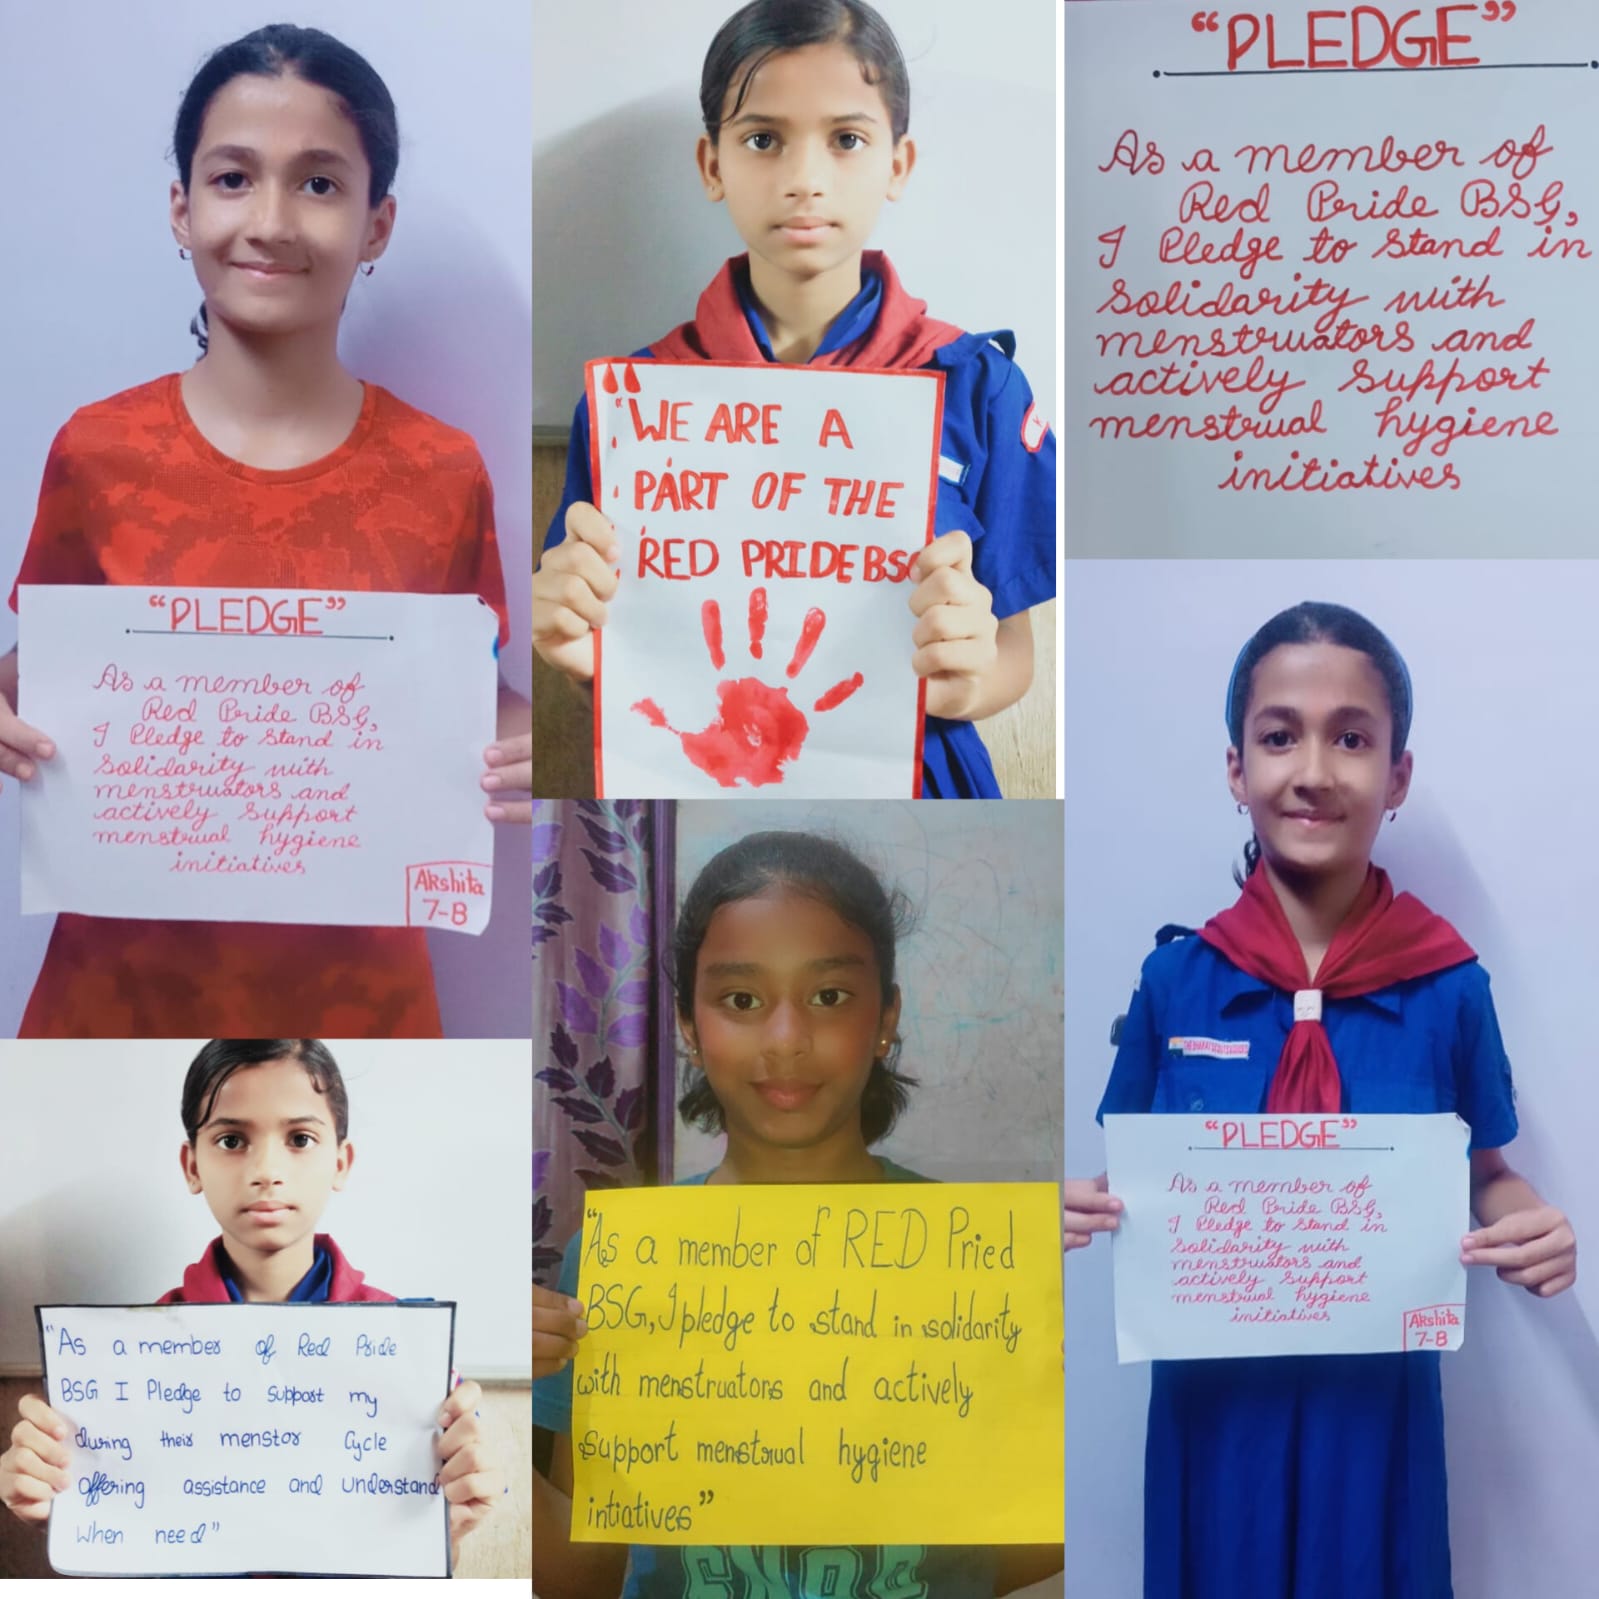 “PLEDGE”
As a member of
Red Pride BSG,
I Pledge to Stand in
Solidarity with
menstruators and
actively Support
menstrual hygiene
initiatives
Akshita
7-B
"WE ARE A
PART OF THE
RED PRIDE BSG
“PLEDGE”
As a member of
Red Pride BSG,
I Pledge to Stand in
Solidarity with
menstruators and
actively Support
menstrual hygiene
initiatives
“As a member of Red Pride
BSG I Pledge to Support my
during their menstor Cycle
offering assistance and understand
when need”
“As a member of RED Pried
BSG, I pledge to stand in solidarity
with menstruators and actively
Support menstrual hygiene
intiatives”
THE BHARAT SCOUTS & GUIDES
“PLEDGE”
As a member of
Red Pride BSG,
I Pledge to Stand in
Solidarity with
menstruators and
actively Support
menstrual hygiene
initiatives
Akshita
7-B